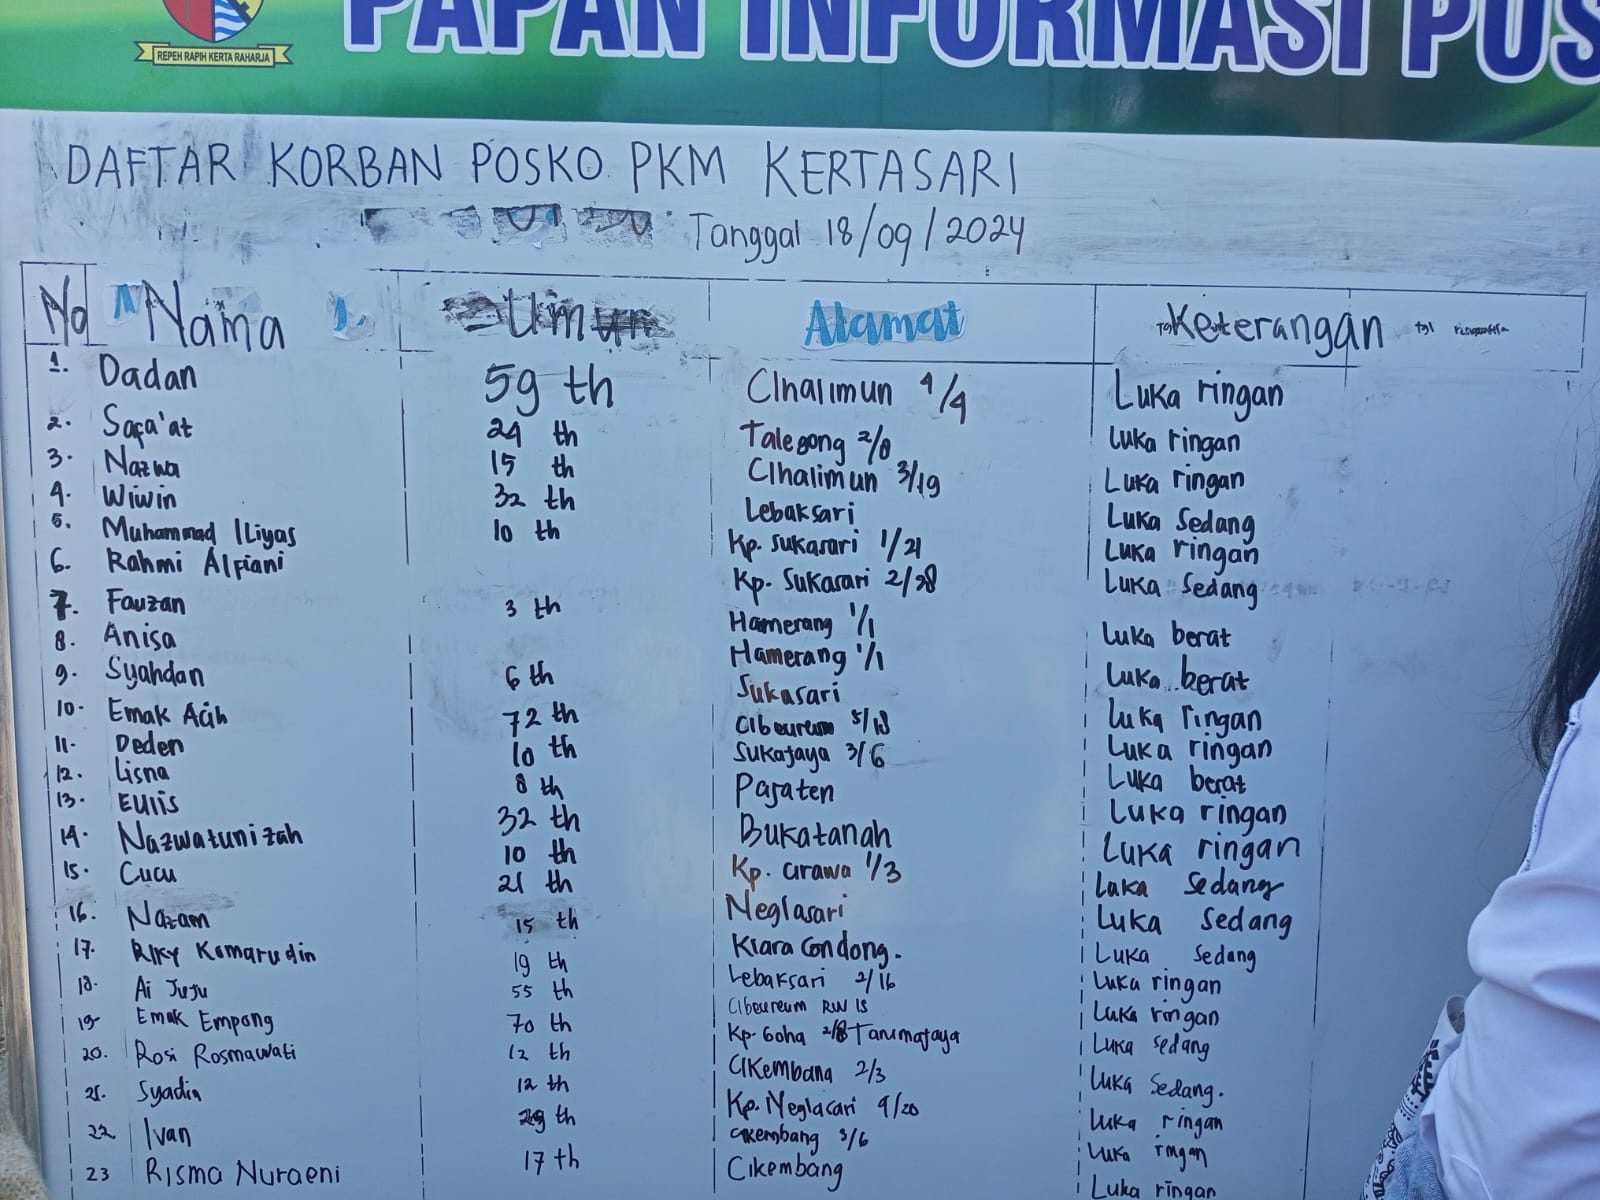 REPEH RAPIH KERTA RAHARJA
PAPAN INFORMASI POS
DAFTAR KORBAN POSKO PKM KERTASARI
Tanggal 18/09/2024
No Nama Umur Alamat Keterangan
1. Dadan 59 th CIhalimun 4/4 Luka ringan
2. Saça'at 24 th Talegong 2/8 Luka ringan
3. Nazwa 15 th CIhalimun 3/19 Luka ringan
4. Wiwin 32 th Lebaksari Luka Sedang
5. Muhammad ILiyas 10 th Kp. Sukasari 1/21 Luka ringan
6. Rahmi Alfiani Kp. Sukasari 2/28 Luka Sedang
7. Fauzan 3 th Hamerang 1/1 Luka berat
8. Anisa Hamerang 1/1 Luka berat
9. Syahdan 6 th Sukasari Luka ringan
10. Emak Acih 72 th Cibeureum 5/18 Luka ringan
11. Deden 10 th Sukajaya 3/6 Luka berat
12. Lisna 8 th Pajaten Luka ringan
13. EULIS 32 th Bukatanah Luka ringan
14. Nazwatunizah 10 th Kp. Cirawa 1/3 Luka Sedang
15. Cucu 21 th Neglasari Luka Sedang
16. Nazam 15 th Kiara Condong. Luka Sedang
17. RIKY Komarudin 19 th Lebaksari 2/16 Luka ringan
18. Ai Juju 55 th Cibeureum RW 15 Luka ringan
19 Emak Empong 70 th Kp. Goha 2/8 Tarumajaya Luka Sedang
20. Rosi Rosmawati 12 th CIKembang 2/3 Luka Sedang.
21. Syadin 12 th Kp. Neglasari 4/20 Luka ringan
22 Ivan 29 th Cikembang 3/6 Luka ringan
23 Risma Nuraeni 17 th Cikembang Luka ringan